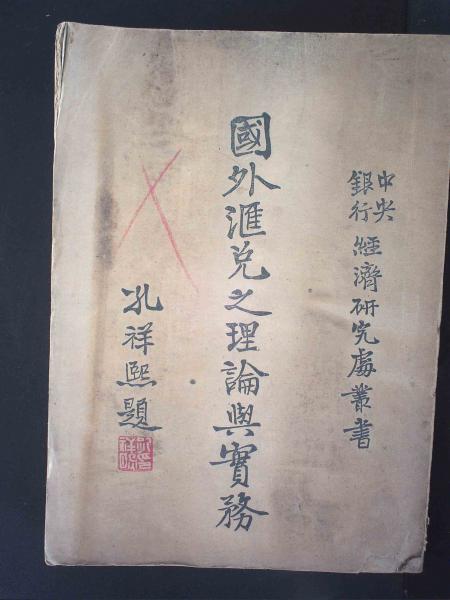 中央銀行經濟研究處叢書
國外滙兌之理論與實務
孔祥熙題